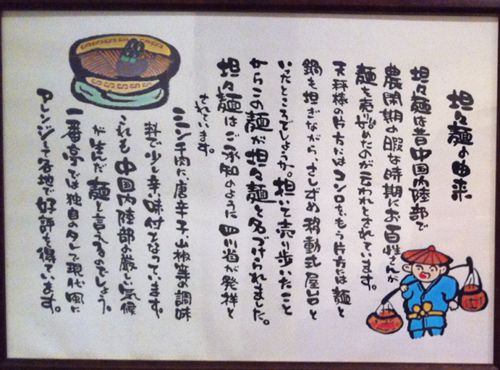 坦々麺の由来
坦々麺は昔中国内陸部で
農閑期の暇な時期にお百姓さんが
麺を売り始めたのが元われとされています。
天秤棒の片方にはコンロを、もう片方には麺と
鍋を担ぎながら、さしずめ移動式屋台と
いったところでしょうか。担いで売り歩いたこと
からこの麺が坦々麺と名づけられました。
坦々麺はご承知のように四川省が発祥と
されています。
ミンチ肉だ、唐辛子、山椒等の調味
料で少し辛味付になっています。
これも中国内陸部の厳しい気候
が生んだ麺と言えるのでしょう。
一番亭では独自のタレで現代風に
アレンジして各地で好評を得ています。